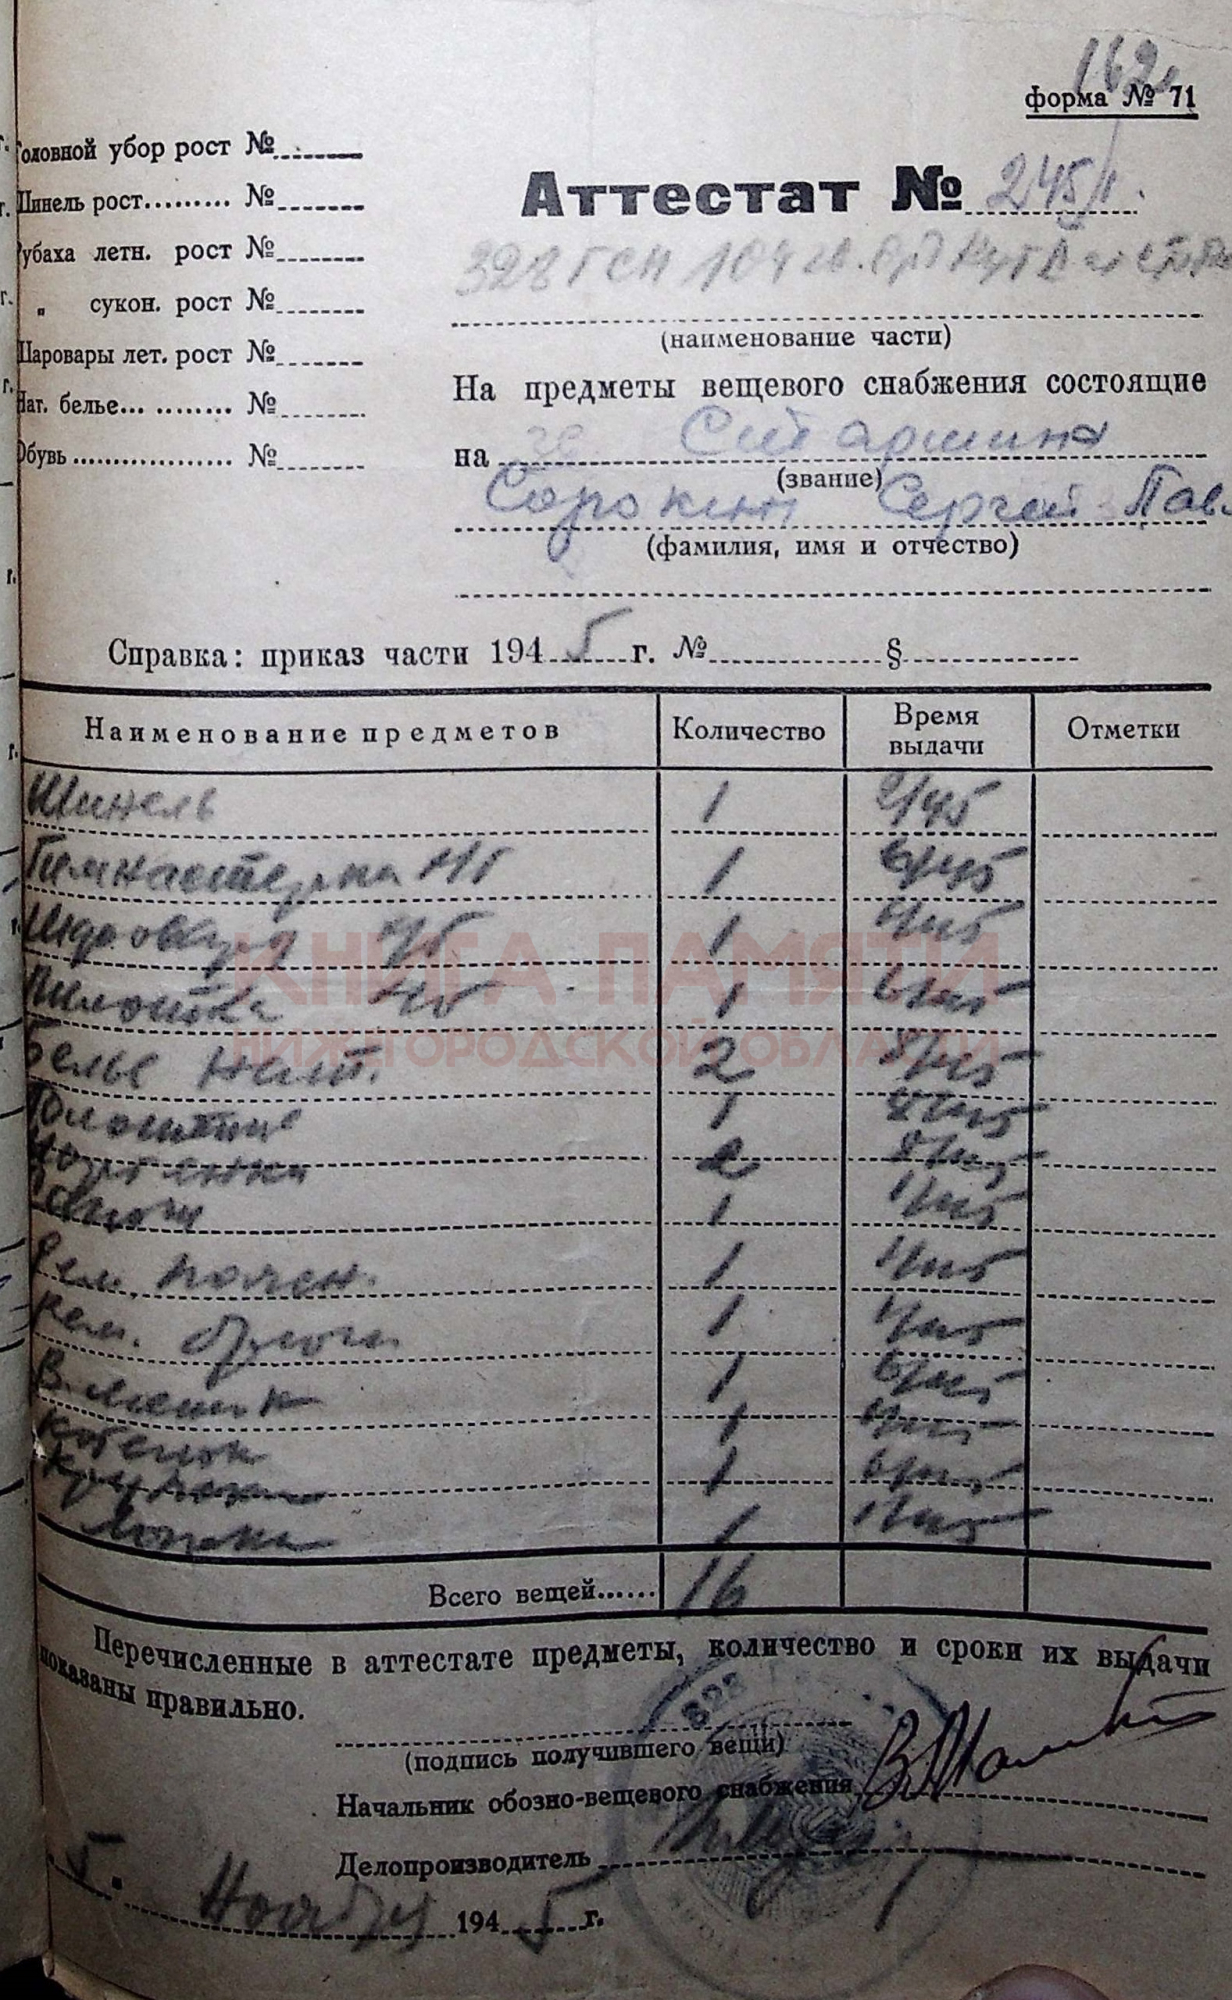 162
форма № 71
Головной убор рост №
Шинель рост......... №
Рубаха летн. рост №
" сукон. рост №
Шаровары лет. рост №
Нат. белье... ........ №
Обувь .................. №
Аттестат № 245/1.
328 ГСП 104 гв.
(наименование части)
На предметы вещевого снабжения состоящие
на Старшина
(звание)
Сорокин Сергей Павл
(фамилия, имя и отчество)
Справка: приказ части 1945 г. № §
Наименование предметов Количество Время выдачи Отметки
Шинель 1 2/45
Гимнастерка х/б 1 6/45
Шаровары х/б 1 6/45
Пилотка х/б 1 6/45
Белье нат. 2 8/45
Полотенце 1
Портянки 2 8/45
Сапоги 1 1/45
Рем. поясн. 1 1/45
Рем. брючн 1 1/45
В. мешок 1 6/45
Котелок 1
Кружка 1 6/45
Ложка 1 1/45
Всего вещей...... 16
Перечисленные в аттестате предметы, количество и сроки их выдачи
показаны правильно.
(подпись получившего вещи)
Начальник обозно-вещевого снабжения
Делопроизводитель
5. Ноября 1945 г.
328
КНИГА ПАМЯТИ
НИЖЕГОРОДСКОЙ ОБЛАСТИ